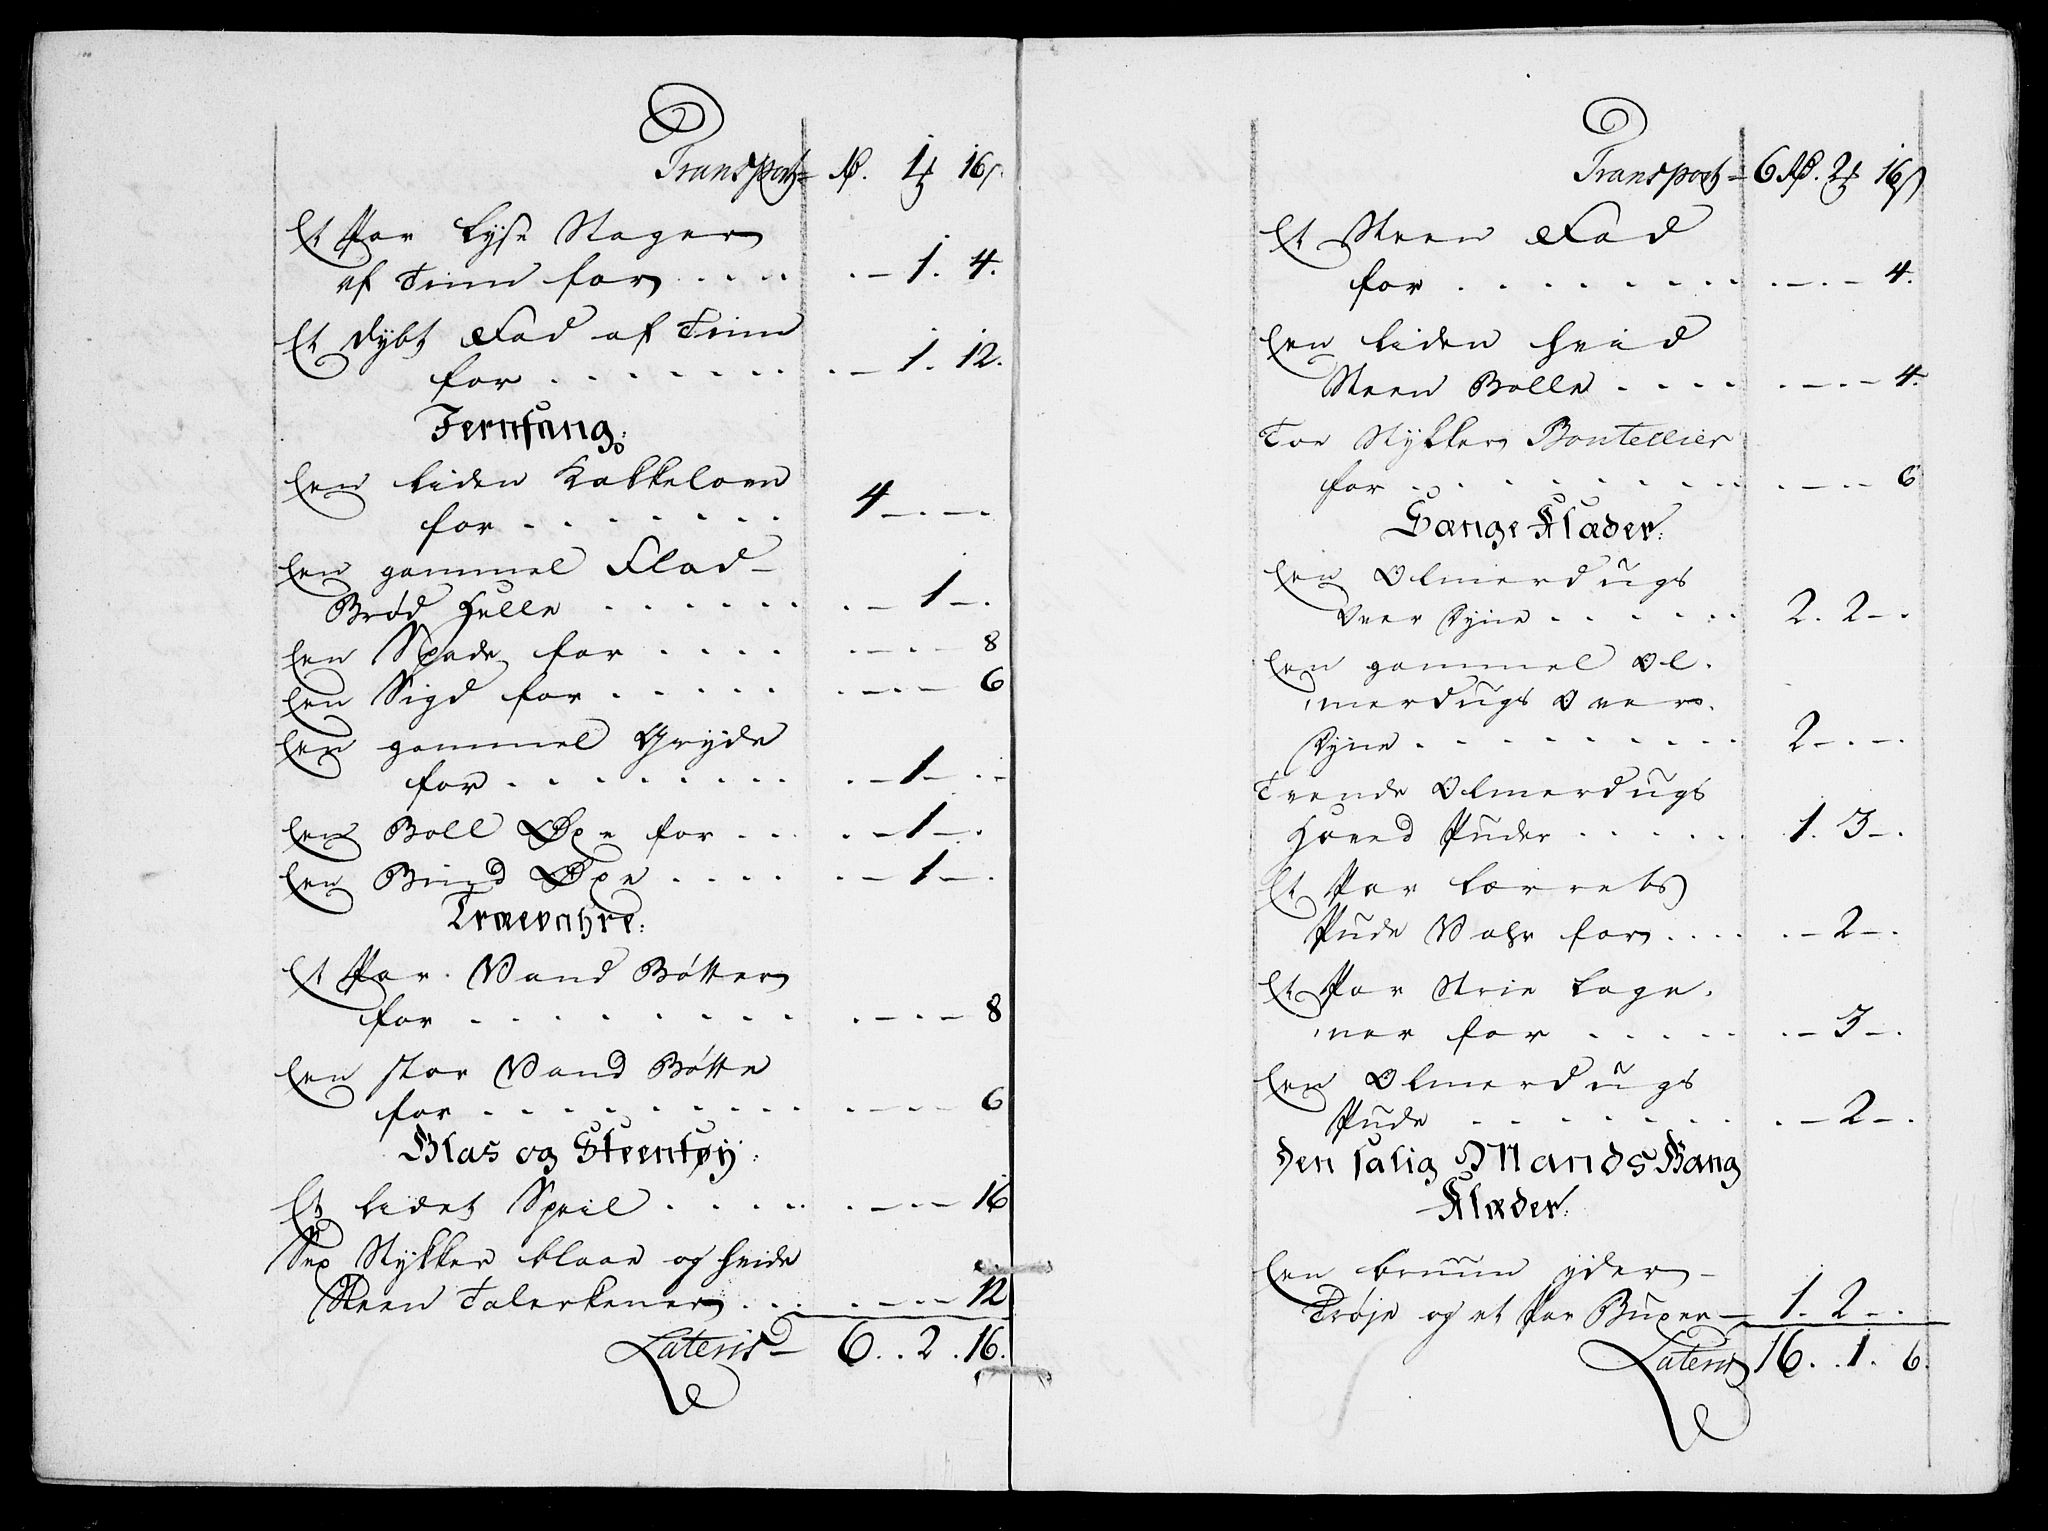 Transport= Rd. 1 ₰ 16 s.
Et Par Lyse Stager
af Tinn for . . . . . – 1. 4.
Et dybt Fad af Tinn
for . . . . . . . – 1. 12.
Jernfang:
Een liden Kakkeloen
for . . . . . . 4 – . – .
Een gammel Flad-
Brød Helle . . . . . . – 1 – .
Een Spade for . . . . . – . – 8
Een Sigd for . . . . . . – . – 6
Een gammel Gryde
for . . . . . . . . – 1 – . –
Een Boll Øxe for . . . . – 1 – .
Een Bind Øxe . . . . . – 1 – .
Trævahre:
Et Par Vand Bøtter
for . . . . . . . . – . – 8
Een stor Vand Bøtte
for . . . . . . . . – . – 6
Glas og Steentøy:
Et lidet Speil . . . . . – . – 16
Sex Stykker blaae og hvide
Steen Talerkener . . . . – . – 12
Lateris – 6. . 2. 16.
Transport = 6 Rd. 2 ₰ 16 s
Et Steen Fad
for . . . . . . . . – . – 4.
Een liden hvid
Steen Bolle . . . . . – . – 4.
Toe Stykker Bouteillier
for . . . . . . . . – . – 6
Sænge Klæder:
Een Olmerdugs
Over Dyne . . . . . . 2. 2 – .
Een gammel Ol-
merdugs Over-
Dyne . . . . . . . . 2 – . – .
Tvende Olmerdugs
Hoved Puder . . . . . 1. 3 – .
Et Par Lærrets
Pude Vahr for . . . . – 2 – .
Et Par Strie Lage-
ner for . . . . . . – 3 – .
Een Olmerdugs
Pude . . . . . . . – 2 – .
Den salig Mands Gang
Klæder:
Een bruun yder-
Trøje og et Par Buxer – 1. 2 – .
Lateris 16. . 1. 6.